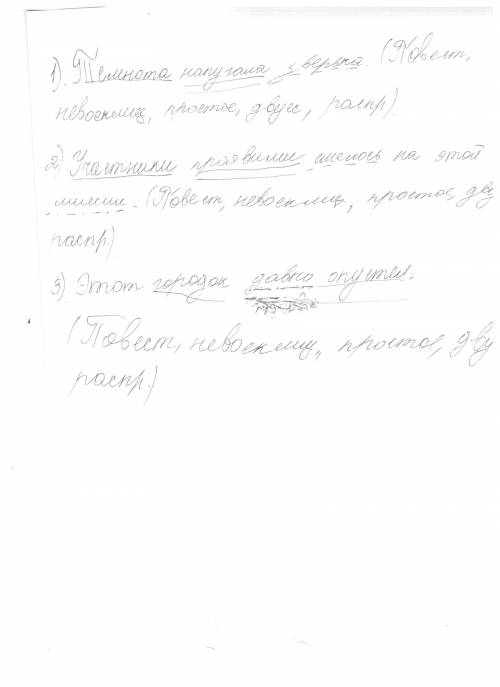 1). Темнота напугала зверька. (Повест,
невосклиц, простое, двусс, распр).
2) Участники проявили смелось на этой
миссии. (Повест, невосклиц, простое, дву
распр.)
3) Этот городок давно опустел.
(Повест, невосклиц, простое, дву
распр.)